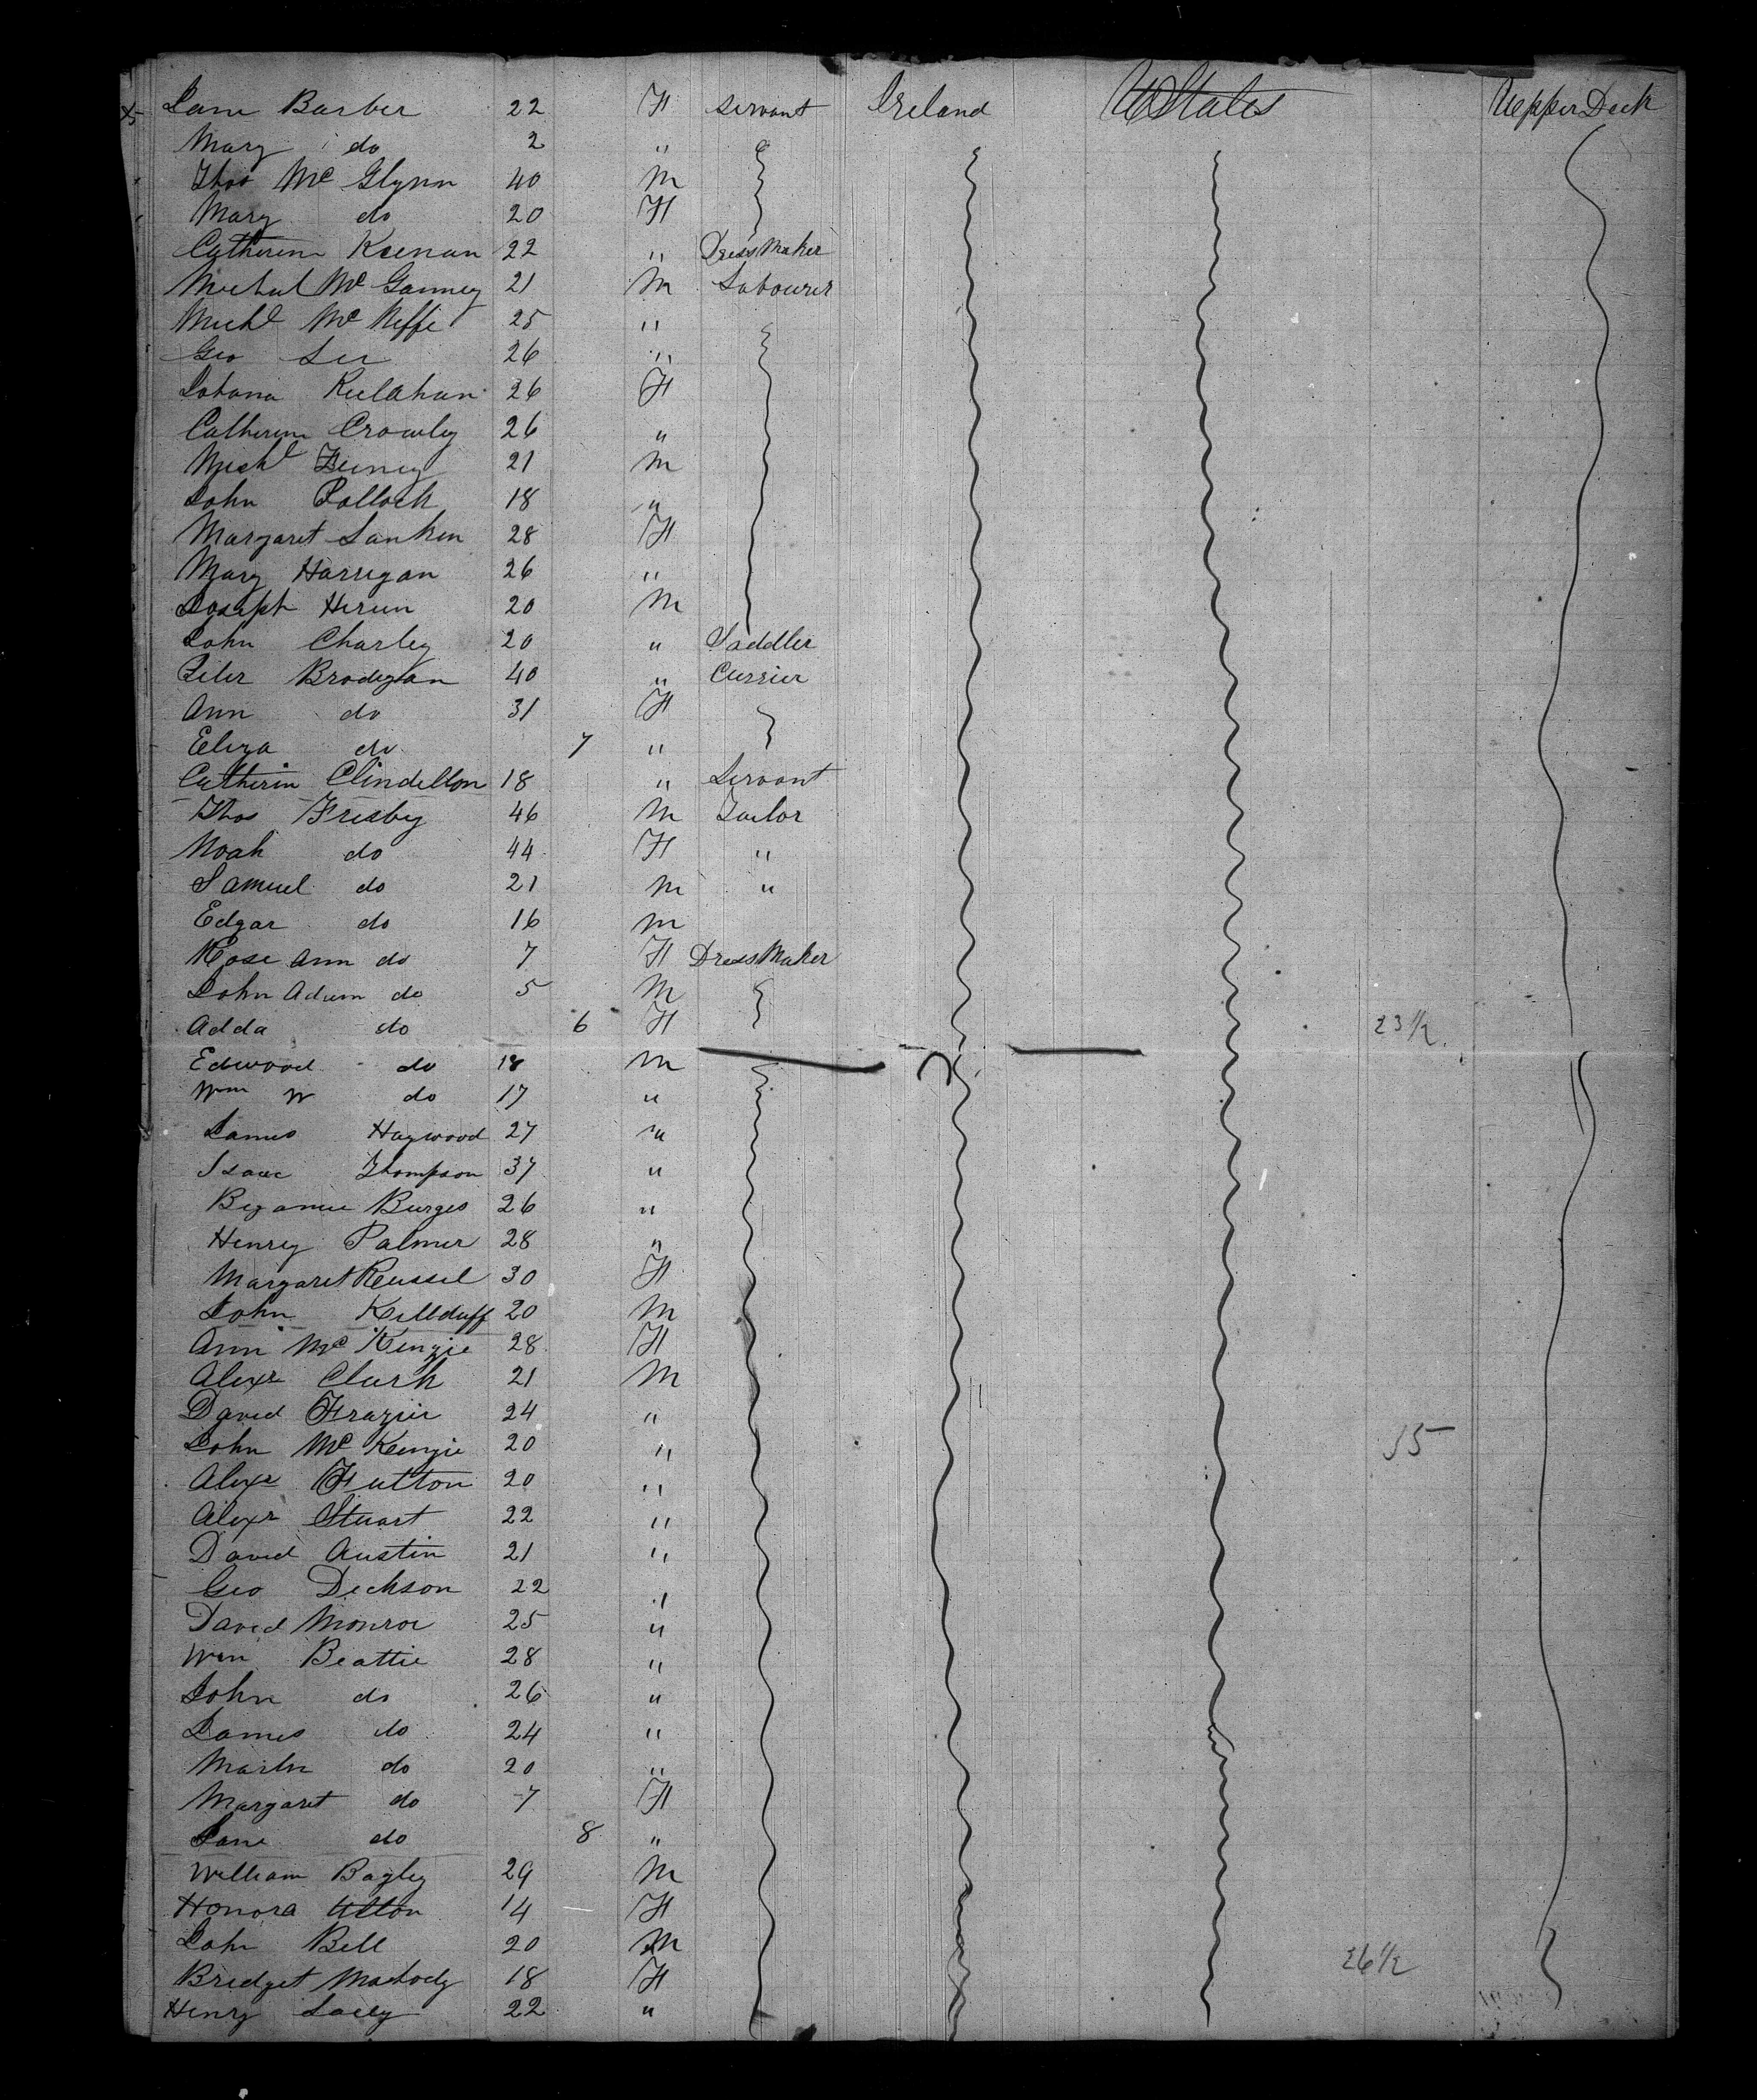 Jane Barber 22 F servant Ireland U States Upper Deck
Mary do 2 "
Thos Mc Glynn 40 M
Mary do 20 F
Catherine Keenan 22 " Dress Maker
Michal Mc Ganney 21 M Labourer
Michl Mc Niffe 25 "
Geo Lee 26 "
Johana Kulahan 26 F
Catherine Crowley 26 "
Michl Feeney 21 M
John Pollock 18 "
Margaret Lanken 28 F
Mary Harrigan 26 "
Joseph Herun 20 M
John Charley 20 " Saddler
Peter Brodigan 40 " Currier
Ann do 31 F
Eliza do 7 "
Catherin Clindellon 18 " Servant
Thos Frisby 46 M Tailor
Noah do 44 F "
Samuel do 21 M "
Edgar do 16 M
Rose Ann do 7 F Dress Maker
John Adam do 5 M
Adda do 6 F 23 1/2
Edwood do 18 M
Wm W do 17 "
James Haywood 27 "
Isaac Thompson 37 "
Burges 26 "
Henry Palmer 28 "
Margaret Russel 30 F
John Killduff 20 M
Ann Mc Kenzie 28 F
Alexr Clark 21 M
David Frazier 24 "
John Mc Kenzie 20 " 15
Alexr Futton 20 "
Alexr Stuart 22 "
David Austin 21 "
Geo Dickson 22 "
David Monroe 25 "
Wm Beattie 28 "
John do 26 "
James do 24 "
Martin do 20 "
Margaret do 7 F
Jane do 8 "
William Bagley 29 M
Honora Ulton 14 F
John Bell 20 M
Bridget 18 F 26 1/2
Henry Lacey 22 "